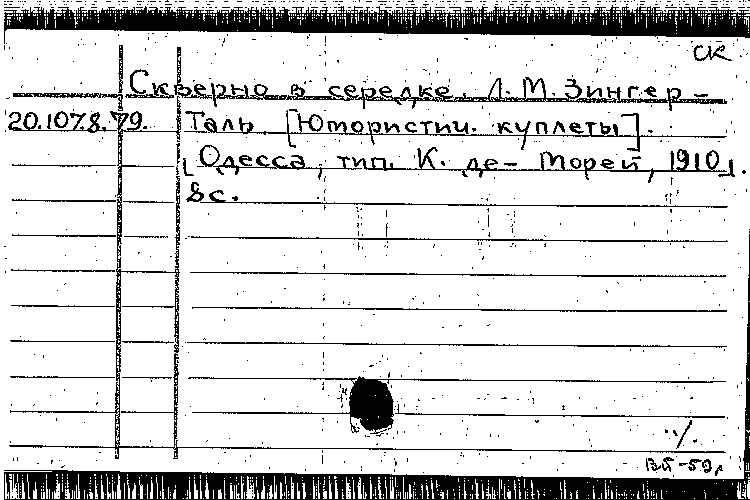 СК
Скверно в середке. Л. М. Зингер-
20.107.8.79. Таль [Юмористич. куплеты].
[Одесса, тип. К. де-Морей, 1910].
8с.
ВП-59г